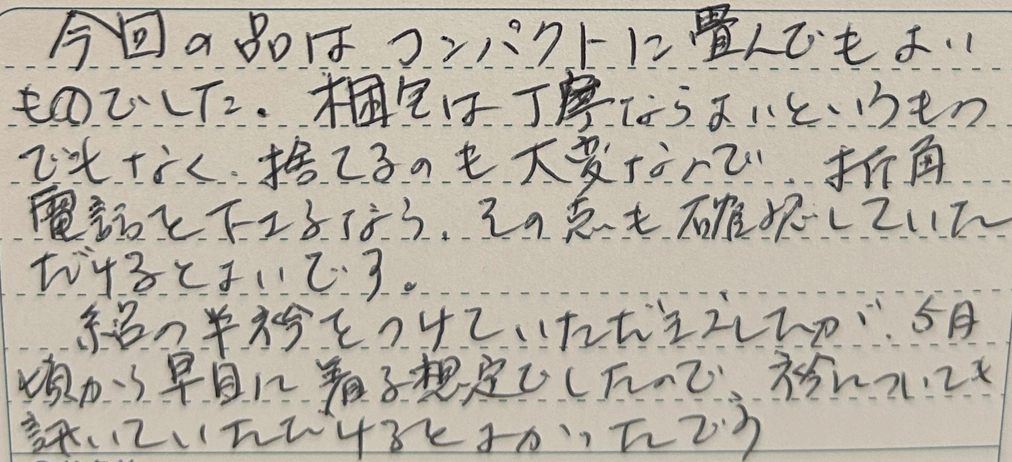 今回の品はコンパクトに畳んでもよい
ものでした。梱包は丁寧ならよいというもの
でもなく、捨てるのも大変なので、折角
電話を下さるなら、その点も確認していた
だけるとよいです。
絽の半衿をつけていただきましたが、5月
頃から早目に着る想定でしたので、衿についても
訊いていただけるとよかったです